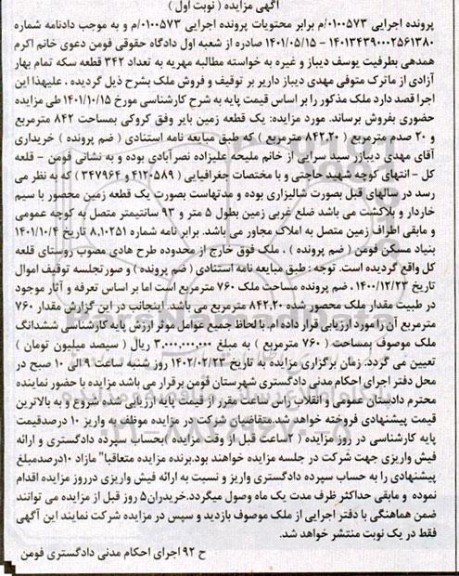 آگهی مزایده ( نوبت اول )
پرونده اجرایی ۰۱۰۰۵۷۳/م برابر محتویات پرونده اجرایی ۰۱۰۰۵۷۳/م و به موجب دادنامه شماره
۱۴۰۱۳۴۳۹۰۰۰۲۵۶۱۳۸۰ – ۱۴۰۱/۰۵/۱۵ صادره از شعبه اول دادگاه حقوقی فومن دعوی خانم اکرم
همدهی بطرفیت یوسف دیباز و غیره به خواسته مطالبه مهریه به تعداد ۳۴۲ قطعه سکه تمام بهار
آزادی از ماترک متوفی مهدی دیباز داریر بر توقیف و فروش ملک بشرح ذیل گردیده ، علیهذا این
اجرا قصد دارد ملک مذکور را بر اساس قیمت پایه به شرح کارشناسی مورخ ۱۴۰۱/۱۰/۱۵ طی مزایده
حضوری بفروش برساند. مورد مزایده: یک قطعه زمین بایر وفق کروکی بمساحت ۸۴۲ مترمربع
و ۲۰ صدم مترمربع ( ۸۴۲.۲۰ مترمربع ) که طبق مبایعه نامه استنادی ( ضم پرونده ) خریداری
آقای مهدی دیباز سید سرایی از خانم ملیحه علیزاده نصرآبادی بوده و به نشانی فومن - قلعه
کل - انتهای کوچه شهید حاجتی و با مختصات جغرافیایی ( ۴۱۲۰۵۸۹ ) ( ۳۴۷۹۶۴ ) که به نظر می
رسد در سالهای قبل بصورت شالیزاری بوده و مدتهاست بصورت یک قطعه زمین محصور با سیم
خاردار و بلاکشت می باشد ضلع غربی زمین بطول ۵ متر و ۹۳ سانتیمتر متصل به کوچه عمومی
و مابقی اطراف زمین متصل به املاک مجاور می باشد. برابر نامه شماره ۸,۱۰۲۵۱ تاریخ ۱۴۰۱/۱۰/۴
بنیاد مسکن فومن ( ضم پرونده ) ، ملک فوق خارج از محدوده طرح هادی مصوب روستای قلعه
کل واقع گردیده است. توجه : طبق مبایعه نامه استنادی ( ضم پرونده ) و صورتجلسه توقیف اموال
تاریخ ۱۴۰۰/۱۲/۲۳ ، ضم پرونده مساحت ملک ۷۶۰ مترمربع است اما بر اساس تعرفه و آثار موجود
در طبیعت مقدار ملک محصور شده ۸۴۲.۲۰ مترمربع می باشد. اینجانب در این گزارش مقدار ۷۶۰
مترمربع آن را مورد ارزیابی قرار داده ام. با لحاظ جمیع عوامل موثر ارزش پایه کارشناسی ششدانگ
ملک موصوف بمساحت ( ۷۶۰ مترمربع ) به مبلغ ۳,۰۰۰,۰۰۰,۰۰۰ ریال ( سیصد میلیون تومان )
تعیین می گردد. زمان برگزاری مزایده به تاریخ ۱۴۰۲/۰۲/۲۳ روز شنبه ساعت ۹ الی ۱۰ صبح در
محل دفتر اجرای احکام مدنی دادگستری شهرستان فومن برقرار می باشد مزایده با حضور نماینده
محترم دادستان عمومی و انقلاب راس ساعت مقرر از قیمت پایه ارزیابی شده شروع و به بالاترین
قیمت پیشنهادی فروخته خواهد شد.متقاضیان شرکت در مزایده موظف به واریز ۱۰ درصدقیمت
پایه کارشناسی در روز مزایده ( ۲ساعت قبل از وقت مزایده )بحساب سپرده دادگستری و ارائه
فیش واریزی جهت شرکت در جلسه مزایده خواهند بود.برنده مزایده متعاقبا" مازاد ۱۰درصدمبلغ
پیشنهادی را به حساب سپرده دادگستری واریز و نسبت به ارائه فیش واریزی درروز مزایده اقدام
نموده و مابقی حداکثر ظرف مدت یک ماه وصول میگردد.خریدران۵ روز قبل از مزایده می توانند
ضمن هماهنگی با دفتر اجرایی از ملک موصوف بازدید و سپس در مزایده شرکت نمایند این آگهی
فقط در یک نوبت منتشر خواهد شد.
ح ۹۲ اجرای احکام مدنی دادگستری فومن